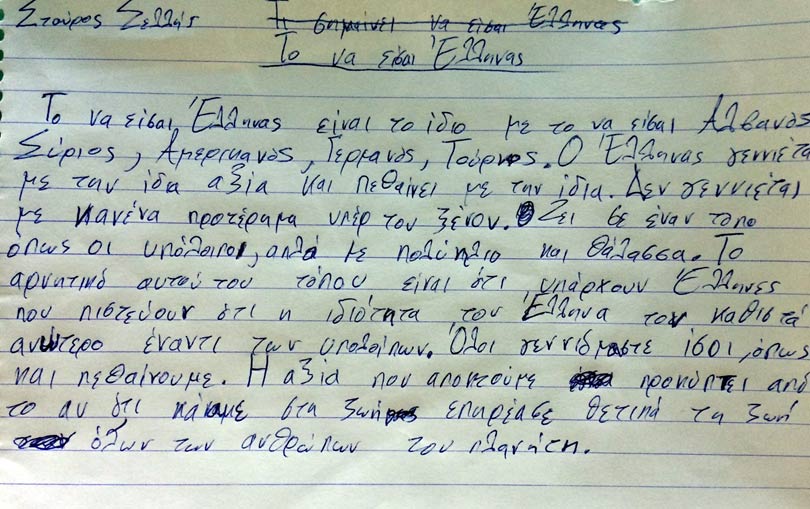 Σταύρος Σελλής Τι σημαίνει να είσαι Έλληνας
Το να είσαι Έλληνας
Το να είσαι Έλληνας είναι το ίδιο με το να είσαι Αλβανός
Σύριος, Αμερικανός, Γερμανός, Τούρκος. Ο Έλληνας γεννιέτα
με την ίδια αξία και πεθαίνει με την ίδια. Δεν γεννιέται
με κανένα προτέραμα υπέρ του ξένου. Ζει σε έναν τόπο
όπως οι υπόλοιποι, απλά με πολύ ήλιο και θάλασσα. Το
αρνητικό αυτού του τόπου είναι ότι, υπάρχουν Έλληνες
που πιστεύουν ότι η ιδιότητα του Έλληνα τον καθιστά
ανώτερο έναντι των υπολοίπων. Όλοι γεννιόμαστε ίσοι, όπως
και πεθαίνουμε. Η αξία που αποκτούμε προκύπτει από
το αν ότι κάναμε στη ζωή επηρέασε θετικά τη ζωή
όλων των ανθρώπων του πλανήτη.